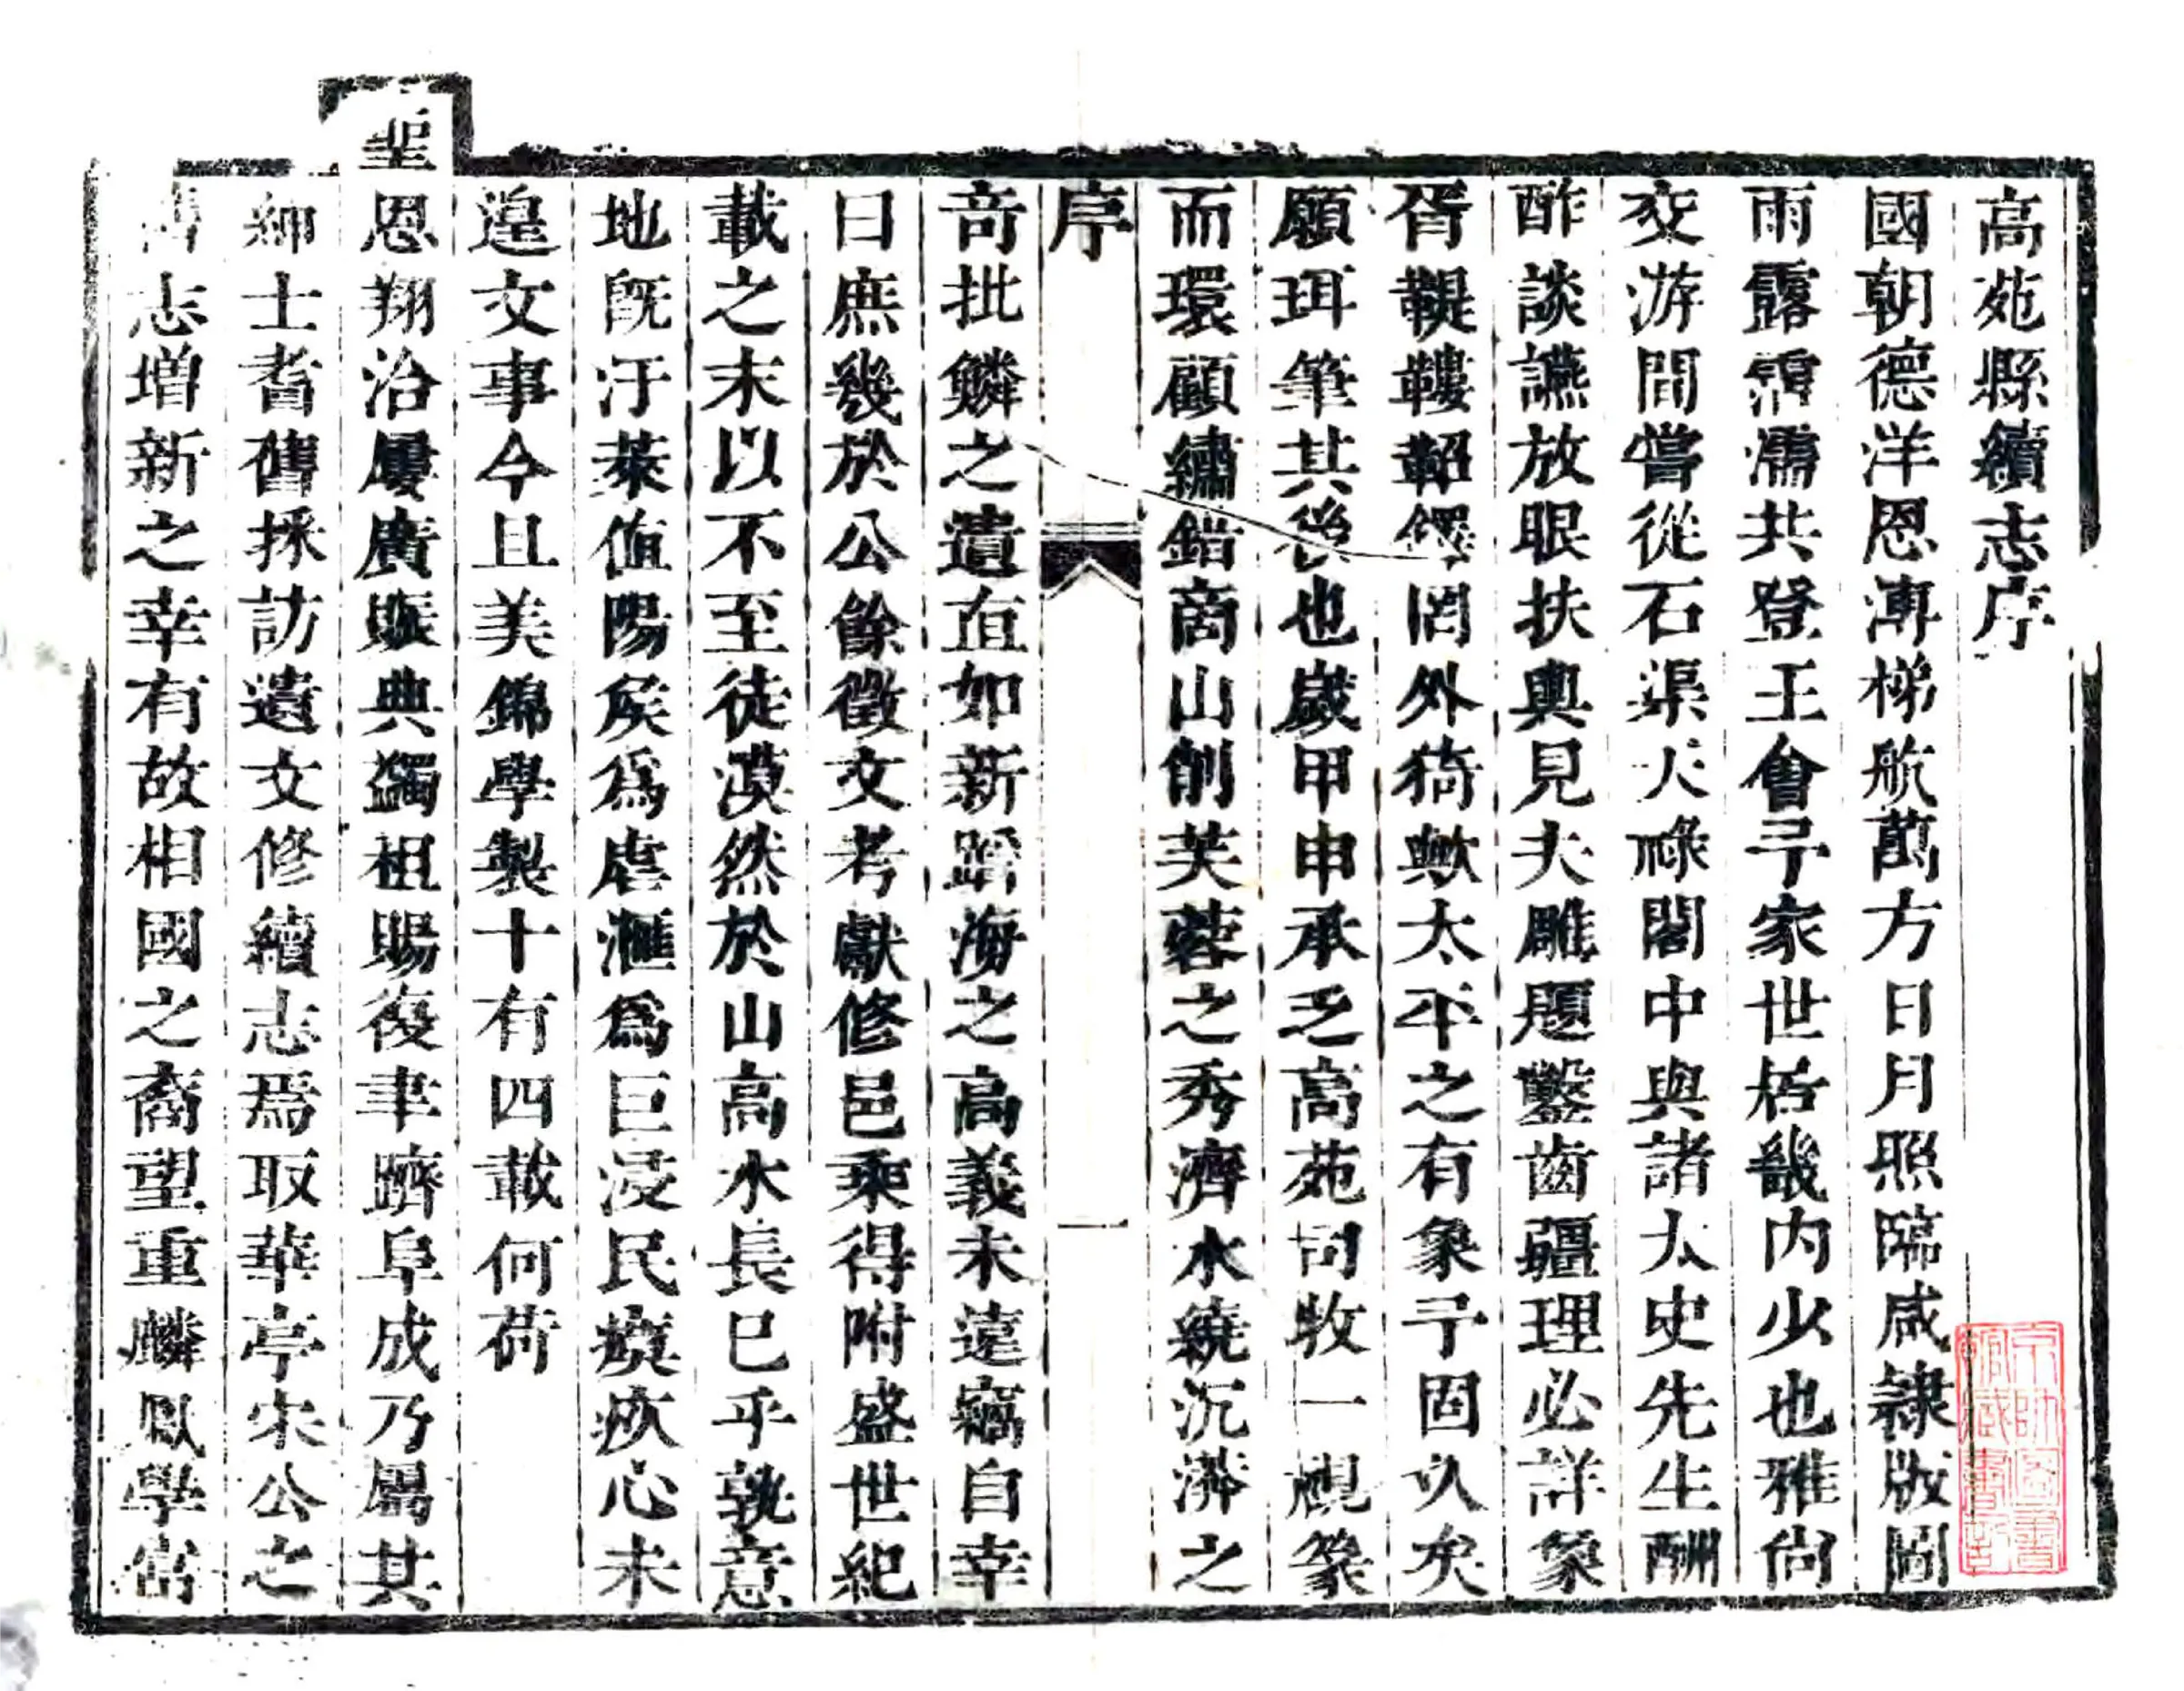 高苑縣續志序
國朝德洋恩溥梯航萬方日月照臨咸隸版圖
雨露霑濡共登王會予家世居畿内少也雅尙
交游間嘗從石渠天祿閣中與諸太史先生酬
酢談讌放眼扶輿見夫雕題鑿齒疆理必詳象
胥鞮鞻鞀鐸罔外猗歟太平之有象予固久矣
願珥筆其後也嵗甲申承乏高苑司牧一覛篆
而環顧繡錯商山削芙蓉之秀濟水繞沉漭之
序
一
奇批鱗之遺直如新蹈海之高義未遠竊自幸
曰庶幾於公餘徵文考獻修邑乘得附盛世紀
載之末以不至徒漠然於山高水長已乎孰意
地旣汙萊值陽矦爲虐滙爲巨浸民瘼疚心未
遑文事今且美錦學製十有四載何荷
聖恩翔洽屢廣賑典蠲租賜復聿躋阜成乃屬其
紳士耆舊採訪遺文修續志焉取華亭宋公之
舊志增新之幸有故相國之裔望重麟鳳學富